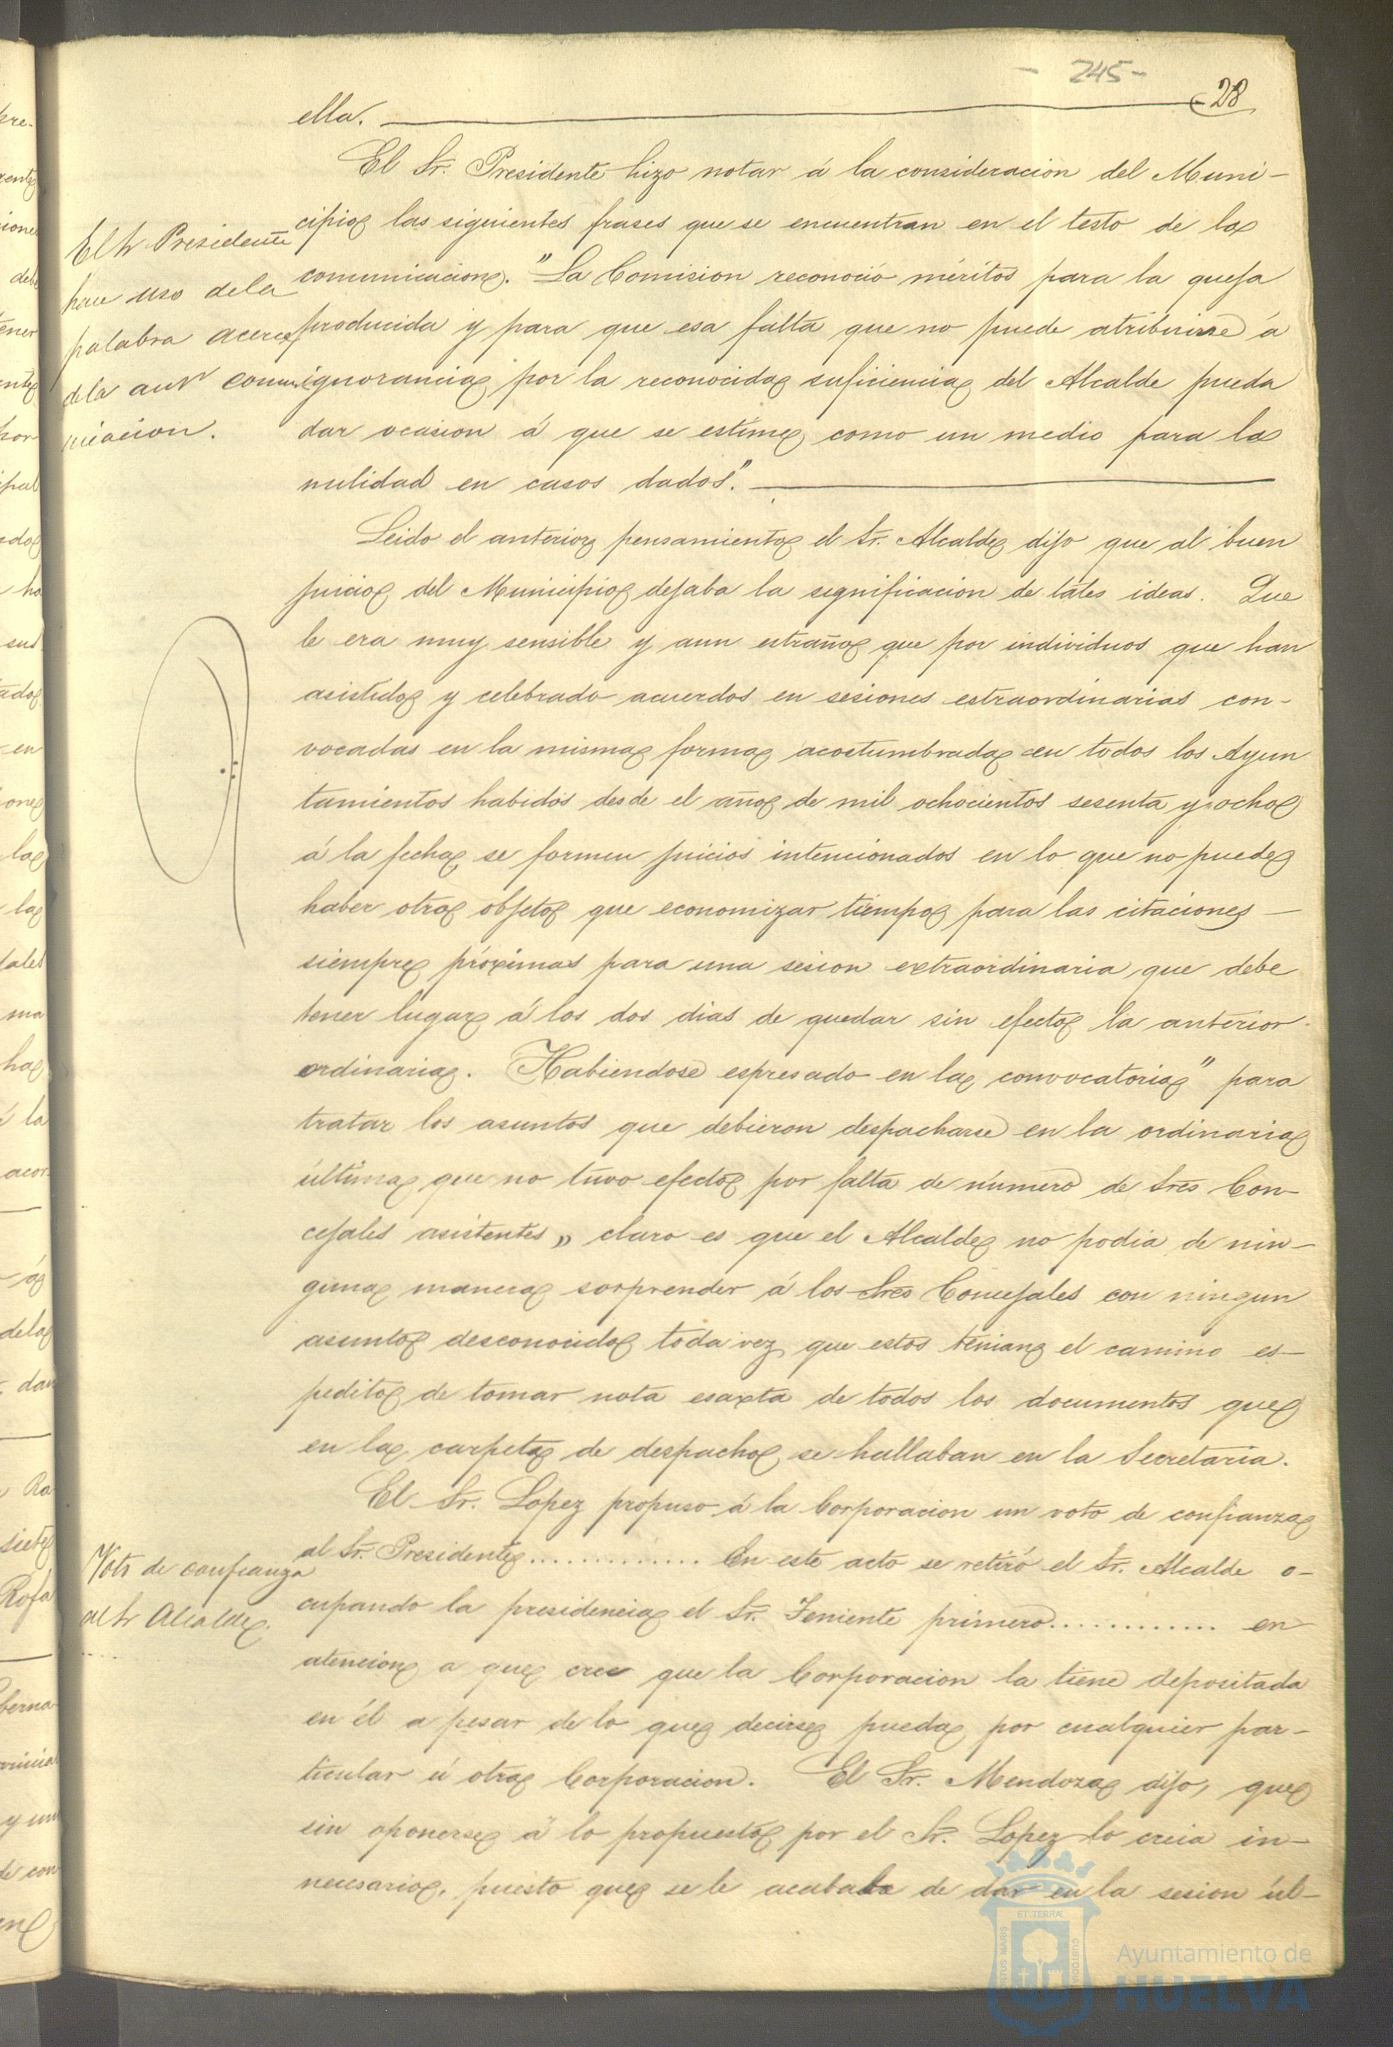 - 245 -
28
ella.
El Sr. Presidente hizo notar á la consideracion del Muni-
cipio las siguientes frases que se encuentran en el testo de la
comunicacion. "La Comision reconoció méritos para la queja
producida y para que esa falta que no puede atribuirse á
ignorancia por la reconocida suficiencia del Alcalde pueda
dar ocasion á que se estime como un medio para la
nulidad en casos dados".
Leido el anterior pensamiento el Sr. Alcalde dijo que al buen
juicio del Municipio dejaba la significacion de tales ideas. Que
le era muy sensible y aun estraño que por individuos que han
asistido y celebrado acuerdos en sesiones estraordinarias con-
vocadas en la misma forma acostumbrada en todos los Ayun
tamientos habidos desde el año de mil ochocientos sesenta y ocho
á la fecha se formen juicios intencionados en lo que no puede
haber otro objeto que economizar tiempo para las citaciones
siempre próximas para una sesion extraordinaria que debe
tener lugar á los dos dias de quedar sin efecto la anterior
ordinaria. Habiendose espresado en la convocatoria "para
tratar los asuntos que debieron despacharse en la ordinaria
última que no tuvo efecto por falta de número de Sres Con-
cejales asistentes" claro es que el Alcalde no podia de nin-
guna manera sorprender á los Sres Concejales con ningun
asunto desconocido toda vez que estos tenian el camino es-
pedito de tomar nota esaxta de todos los documentos que
en la carpeta de despacho se hallaban en la Secretaria.
El Sr. Lopez propuso á la Corporacion un voto de confianza
al Sr. Presidente............. En este acto se retiró el Sr. Alcalde o-
cupando la presidencia el Sr. Teniente primero............. en
atencion a que cree que la Corporacion la tiene depositada
en él a pesar de lo que decirse pueda por cualquier par-
ticular ú otra Corporacion. El Sr. Mendoza dijo, que
sin oponerse á lo propuesto por el Sr. Lopez lo creia in-
necesario, puesto que se le acababa de dar en la sesion úl-
El Sr Presidente
hace uso de la
palabra acerca
de la antr comu-
nicacion.
Voto de confianza
al Sr Alcalde.
Ayuntamiento de
HUELVA